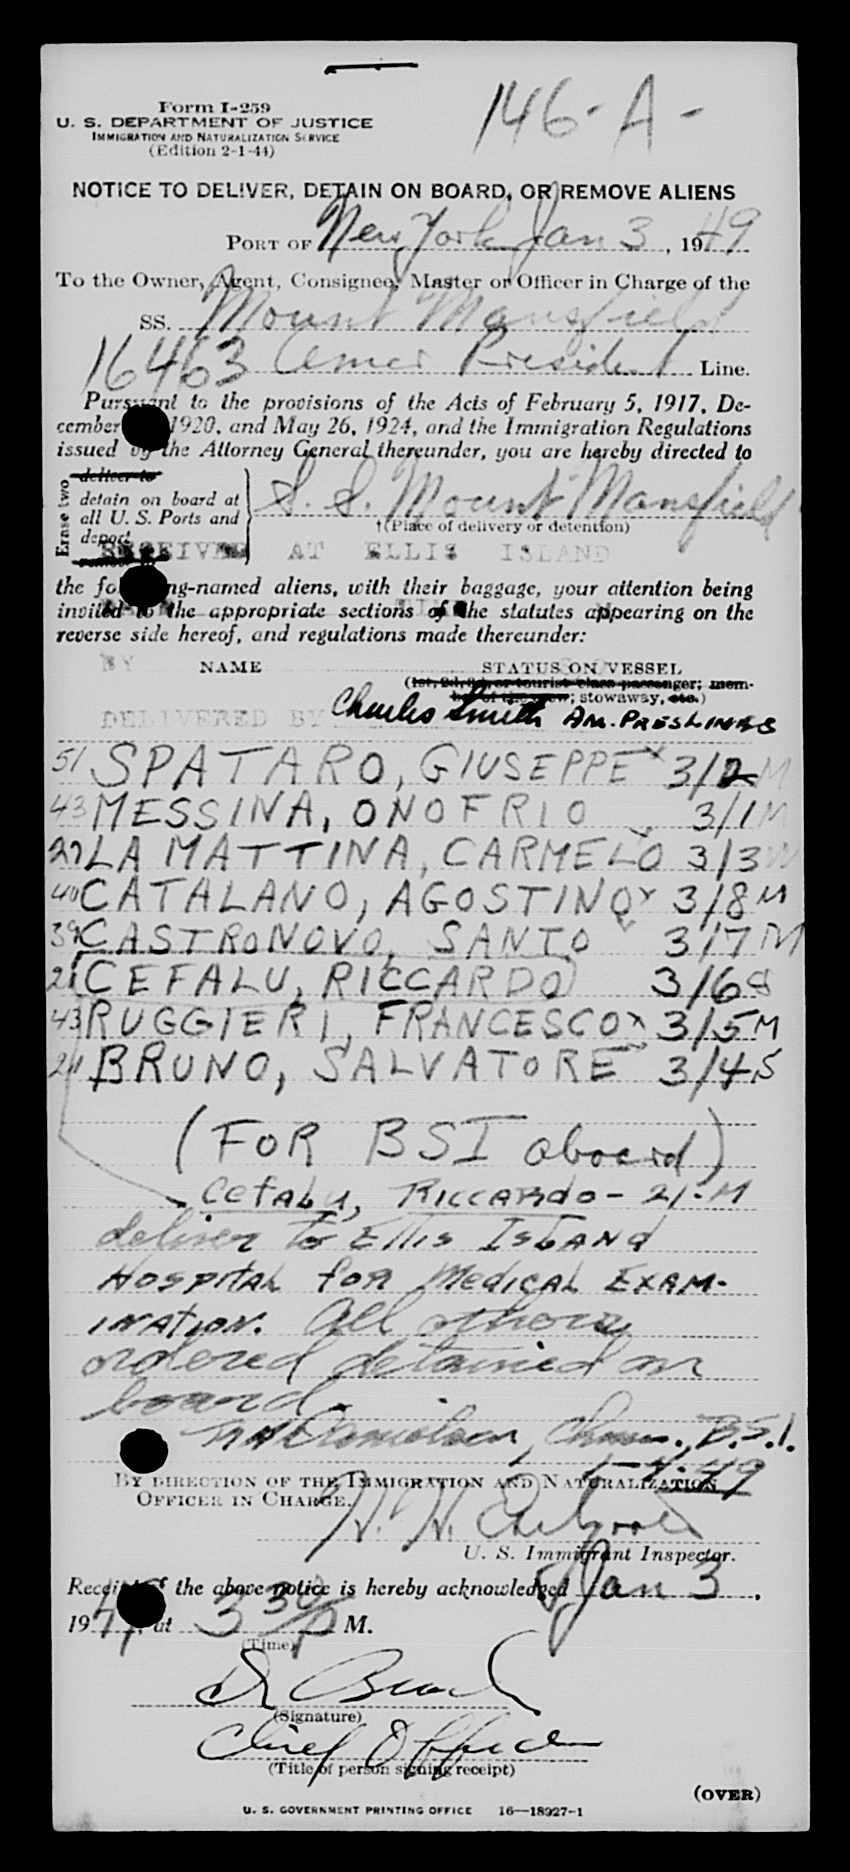 Form I-259
146-A-
U. S. DEPARTMENT OF JUSTICE
IMMIGRATION AND NATURALIZATION SERVICE
(Edition 2-1-44)
NOTICE TO DELIVER, DETAIN ON BOARD, OR REMOVE ALIENS
PORT OF New York Jan 3, 1949
To the Owner, Agent, Consignee, Master or Officer in Charge of the
SS. Mount Mansfield
16463 Amer President Line.
Pursuant to the provisions of the Acts of February 5, 1917, De-
cember 1920, and May 26, 1924, and the Immigration Regulations
issued by the Attorney General thereunder, you are hereby directed to
Erase two
deliver to
detain on board at
all U. S. Ports and
deport
remove to
S. S. Mount Mansfield
†(Place of delivery or detention)
RECEIVED AT ELLIS ISLAND
the following-named aliens, with their baggage, your attention being
invited to the appropriate sections of the statutes appearing on the
reverse side hereof, and regulations made thereunder:
BY
NAME STATUS ON VESSEL
(1st, 2d, 3d, or tourist class passenger; mem-
ber of the crew; stowaway, etc.)
DELIVERED BY Charles Smith AM. PRES LINES
51 SPATARO, GIUSEPPE 3/2 M
43 MESSINA, ONOFRIO 3/1 M
27 LA MATTINA, CARMELO 3/3 M
40 CATALANO, AGOSTINO 3/8 M
39 CASTRONOVO, SANTO 3/7 M
21 CEFALU, RICCARDO 3/6 S
43 RUGGIERI, FRANCESCO 3/5 M
21 BRUNO, SALVATORE 3/4 S
(FOR BSI aboard)
Cefalu, RICCARDO - 21-M
deliver to Ellis ISLAND
HOSPITAL for Medical EXAM-
INATION. All others
ordered detained on
board.
Danielson, Chmn. B.S.I.
1-4-49
BY DIRECTION OF THE IMMIGRATION AND NATURALIZATION
OFFICER IN CHARGE.
U. S. Immigrant Inspector.
Receipt of the above notice is hereby acknowledged Jan 3,
1949, at 3 30 P M.
(Time)
(Signature)
Chief Officer
(Title of person signing receipt)
(OVER)
U. S. GOVERNMENT PRINTING OFFICE 16—18927-1